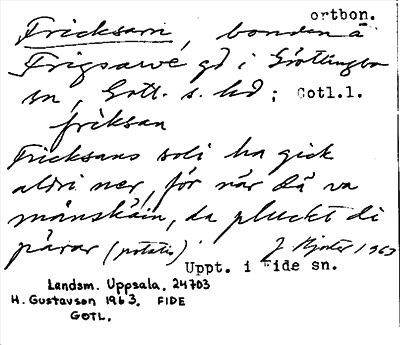 ortbon.
Fricksarn, bonden å
Frigsarve gd i Grötlingbo
sn, Gotl. s. hd; Gotl.l.
friksan
Fricksans soli ha gick
aldri ner, för när dä va
månskäin, da pluckt di
pärar (potatis) J Kjoster 1963
Uppt. i Fide sn.
Landsm. Uppsala. 24703
H. Gustavson 1963. FIDE
GOTL.